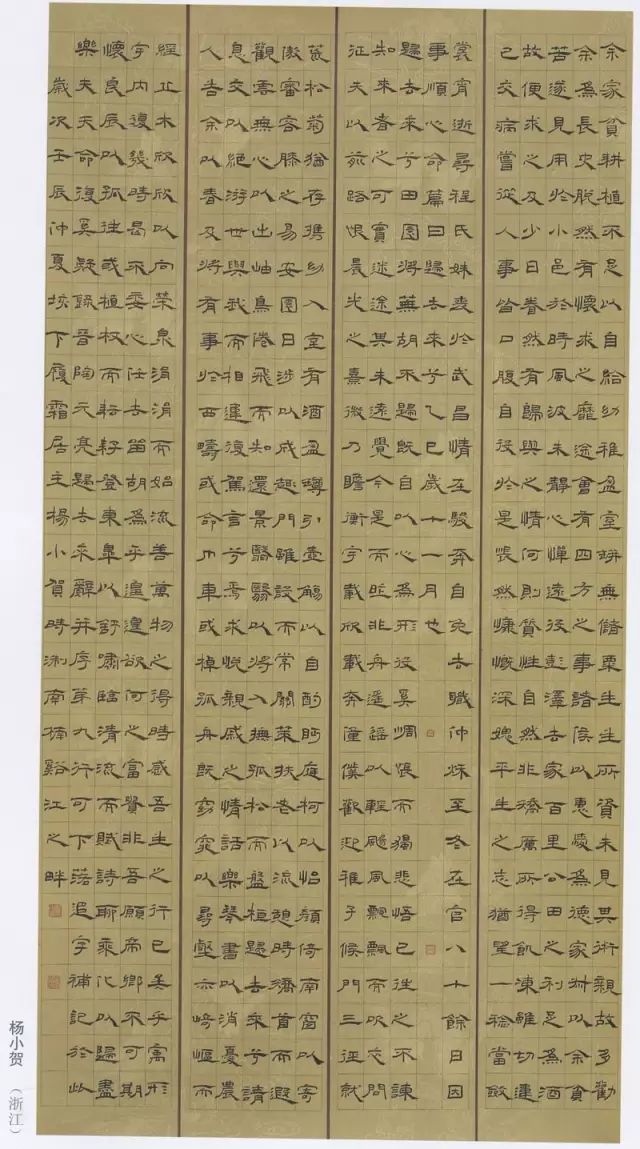 余家貧耕植不足以自給幼稚盈室缾無儲粟生生所資未見其術親故多勸
余為長吏脫然有懷求之靡途會有四方之事諸侯以惠愛為德家叔以余貧
苦遂見用於小邑於時風波未靜心憚遠役彭澤去家百里公田之利足為酒
故便求之及少日眷然有歸與之情何則質性自然非矯厲所得飢凍雖切違
己交病嘗從人事皆口腹自役於是悵然慷慨深媿平生之志猶望一稔當斂
裳宵逝尋程氏妹喪於武昌情在駿奔自免去職仲秋至冬在官八十餘日因
事順心命篇曰歸去來兮乙巳歲十一月也
歸去來兮田園將蕪胡不歸既自以心為形役奚惆悵而獨悲悟已往之不諫
知來者之可實迷途其未遠覺今是而昨非舟遙遙以輕颺風飄飄而吹衣問
征夫以前路恨晨光之熹微乃瞻衡宇載欣載奔僮僕歡迎稚子候門三徑就
荒松菊猶存攜幼入室有酒盈罇引壺觴以自酌眄庭柯以怡顏倚南窗以寄
傲審容膝之易安園日涉以成趣門雖設而常關策扶老以流憩時矯首而遐
觀雲無心以出岫鳥倦飛而知還景翳翳以將入撫孤松而盤桓歸去來兮請
息交以絕游世與我而相違復駕言兮焉求悅親戚之情話樂琴書以消憂農
人告余以春及將有事於西疇或命巾車或棹孤舟既窈窕以尋壑亦崎嶇而
經丘木欣欣以向榮泉涓涓而始流善萬物之得時感吾生之行已矣乎寓形
宇內復幾時曷不委心任去留胡為乎遑遑欲何之富貴非吾願帝鄉不可期
懷良辰以孤往或植杖而耘耔登東皋以舒嘯臨清流而賦詩聊乘化以歸盡
樂夫天命復奚疑錄晉陶元亮歸去來辭并序第九行可下落追字補記於此
歲次壬辰仲夏垓下履霜居主楊小賀時浙南楠谿江之畔
杨小贺（浙江）